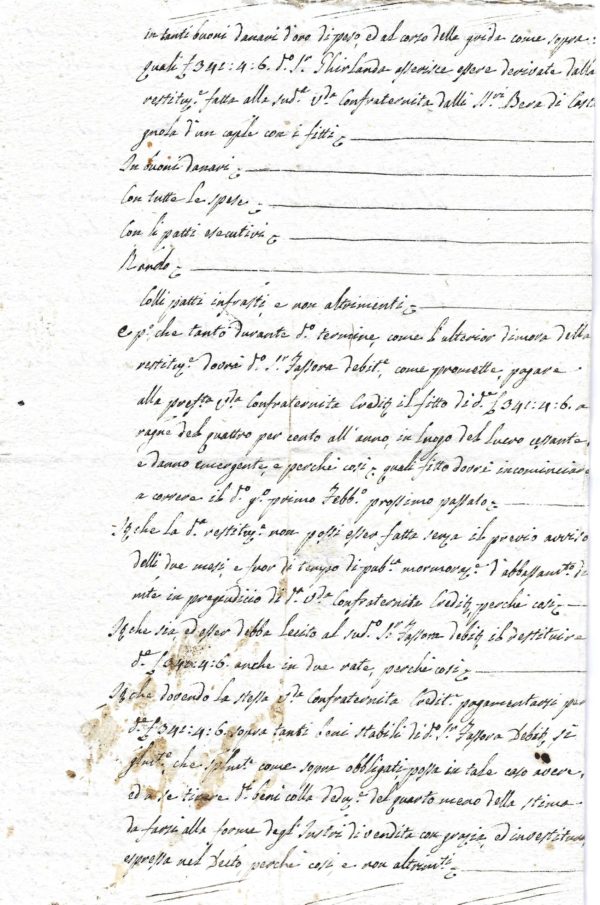 in tanti buoni danari d'oro di peso, ed al corso della grida come sopra:
quali £ 341:4:6. d.o S.r Ghirlanda asserisce essere derivate dalla
restituz.e fatta alla sud.a V.da Confraternita dalli SS.ri Bera di Cast
gnola d'un caple con i fitti
In buoni danari
Con tutte le spese
Con li patti esecutivi
Rendo
Colli patti infrasti, e non altrimenti
e p.o che tanto durante d.o termine, come l'ulterior dimora della
restituz.e dovrà d.o S.r Fassora debit.e, come promette, pagare
alla prefta V.da Confraternita Credit.e il fitto di d.e £ 341:4:6. a
ragne del quattro per cento all'anno, in luogo del lucro cessante,
e danno emergente, e perché così, quali fitto dovrà incominciare
a correre il d.o g.o primo Febb.o prossimo passato
It. che la d.a restituz.e non possi esser fatta senza il previo avviso
delli due mesi, e fuor di tempo di pub.ca mormoraz.e d'abbassam.to di
mte in pregiudicio di d.a V.da Confraternita Credit.e, perché così
It. che sia, ed esser debba lecito al sud.o S.r Fassora debit.e il restituire
d.e £ 341:4:6. anche in due rate, perché così
It. che dovendo la stessa V.da Confraternita Credit.e pagamentarsi per
d.e £ 341:4:6. sopra tanti beni stabili di d.o S.r Fassora Debit.e, si
che come sopra obbligati possa in tale caso avere,
ed a se tirare d.i beni colla deduz.e del quarto meno della stima
da farsi alla forma degli di vendita con grazia, ed investitura
espressa nel Decto perché così, e non altrimti